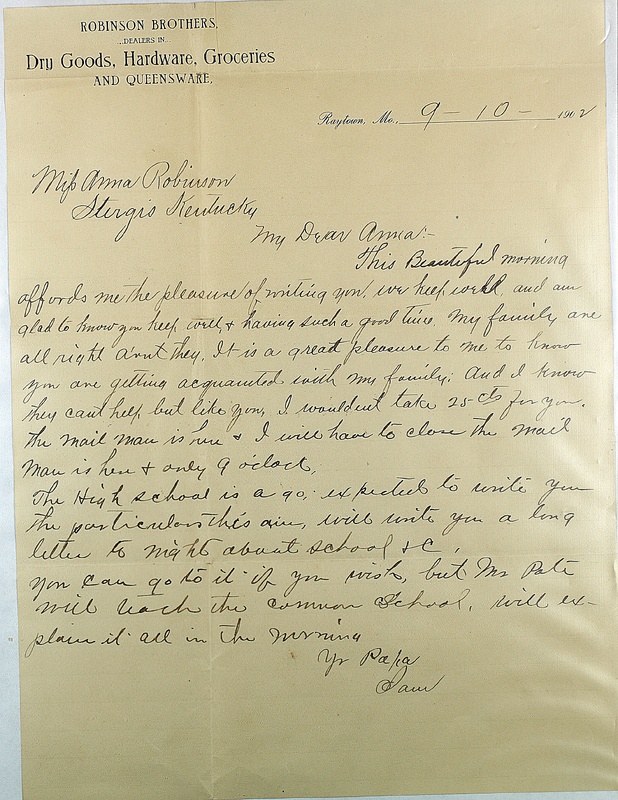 ROBINSON BROTHERS,
...DEALERS IN...
Dry Goods, Hardware, Groceries
AND QUEENSWARE,
Raytown, Mo., 9 - 10 - 1902
Miss Anna Robinson
Stergis Kentucky
My Dear Anna:-
This Beautiful morning
affords me the pleasure of writing you, we keep well, and am
glad to know you keep well, & having such a good time, My family are
all right aint they. It is a great pleasure to me to know
you are getting acquanted with my family; And I know
they cant help but like you, I wouldent take 25 cts for you.
The mail man is here & I will have to close the mail
man is here & only 9 oclock,
The High school is a go, expected to write you
the particulars this am, will write you a long
letter to night about school &C,
you can go to it if you wish, but Mr Pate
will teach the common School, will ex-
plain it all in the morning
Yr Papa
Sam